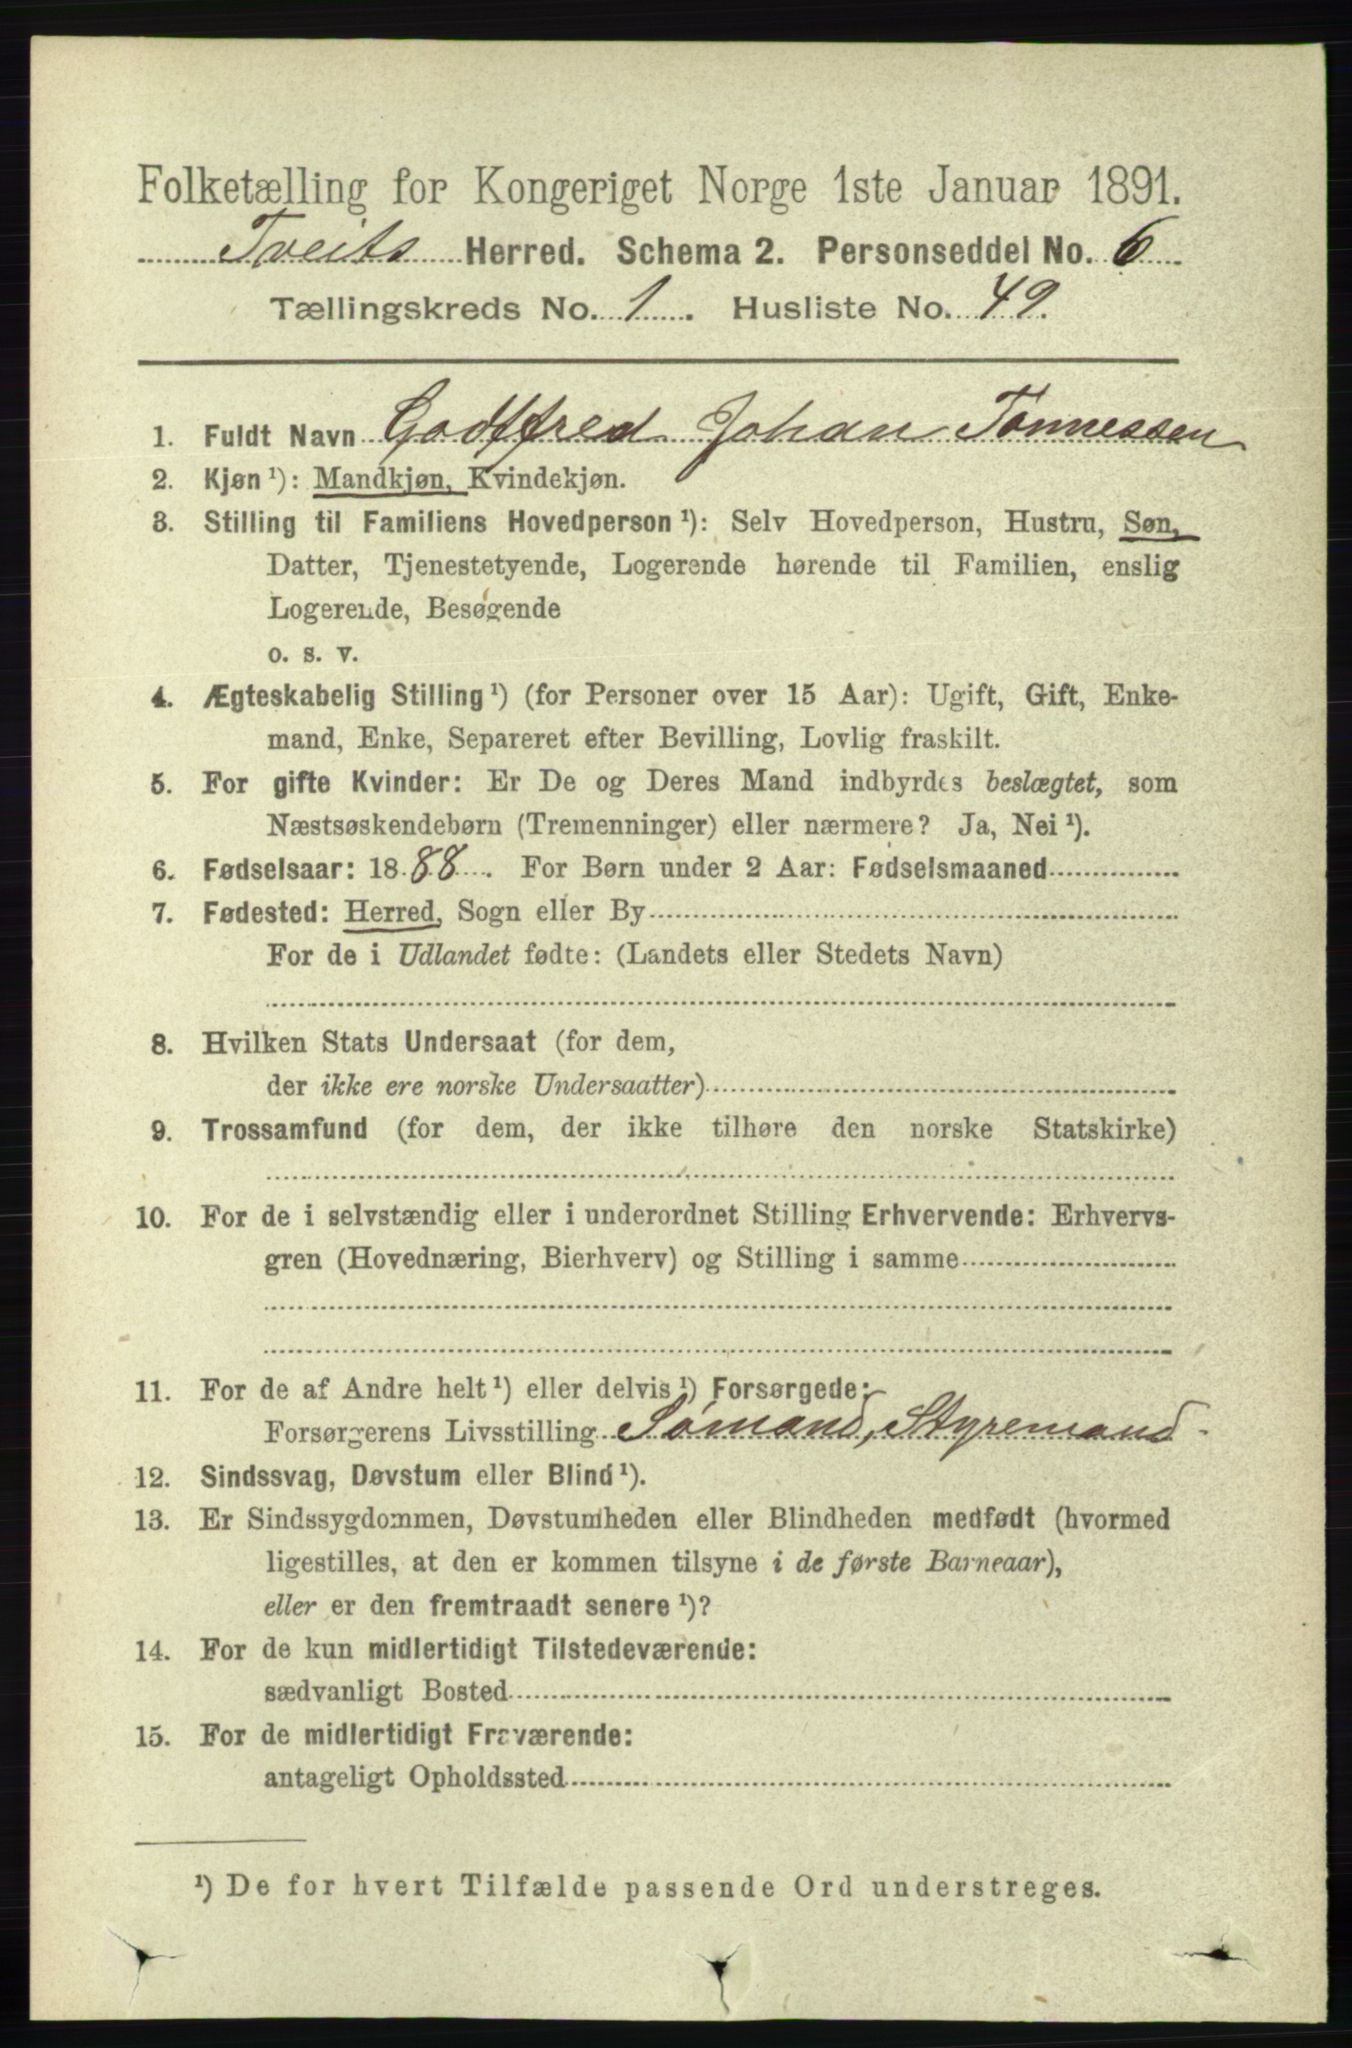 Folketælling for Kongeriget Norge 1ste Januar 1891.
Tveits Herred. Schema 2. Personseddel No. 6
Tællingskreds No. 1. Husliste No. 49.
1. Fuldt Navn Godtfred Johan Tønnessen
2. Kjøn ¹): Mandkjøn, Kvindekjøn.
3. Stilling til Familiens Hovedperson ¹): Selv Hovedperson, Hustru, Søn,
Datter, Tjenestetyende, Logerende hørende til Familien, enslig
Logerende, Besøgende
o. s. v.
4. Ægteskabelig Stilling ¹) (for Personer over 15 Aar): Ugift, Gift, Enke-
mand, Enke, Separeret efter Bevilling, Lovlig fraskilt.
5. For gifte Kvinder: Er De og Deres Mand indbyrdes beslægtet, som
Næstsøskendebørn (Tremenninger) eller nærmere? Ja, Nei ¹).
6. Fødselsaar: 1888. For Børn under 2 Aar: Fødselsmaaned
7. Fødested: Herred, Sogn eller By
For de i Udlandet fødte: (Landets eller Stedets Navn)
8. Hvilken Stats Undersaat (for dem,
der ikke ere norske Undersaatter)
9. Trossamfund (for dem, der ikke tilhøre den norske Statskirke)
10. For de i selvstændig eller i underordnet Stilling Erhvervende: Erhvervs-
gren (Hovednæring, Bierhverv) og Stilling i samme
11. For de af Andre helt ¹) eller delvis ¹) Forsørgede:
Forsørgerens Livsstilling Sømand, Styremand
12. Sindssvag, Døvstum eller Blind ¹).
13. Er Sindssygdommen, Døvstumheden eller Blindheden medfødt (hvormed
ligestilles, at den er kommen tilsyne i de første Barneaar),
eller er den fremtraadt senere ¹)?
14. For de kun midlertidigt Tilstedeværende:
sædvanligt Bosted
15. For de midlertidigt Fraværende:
antageligt Opholdssted
¹) De for hvert Tilfælde passende Ord understreges.